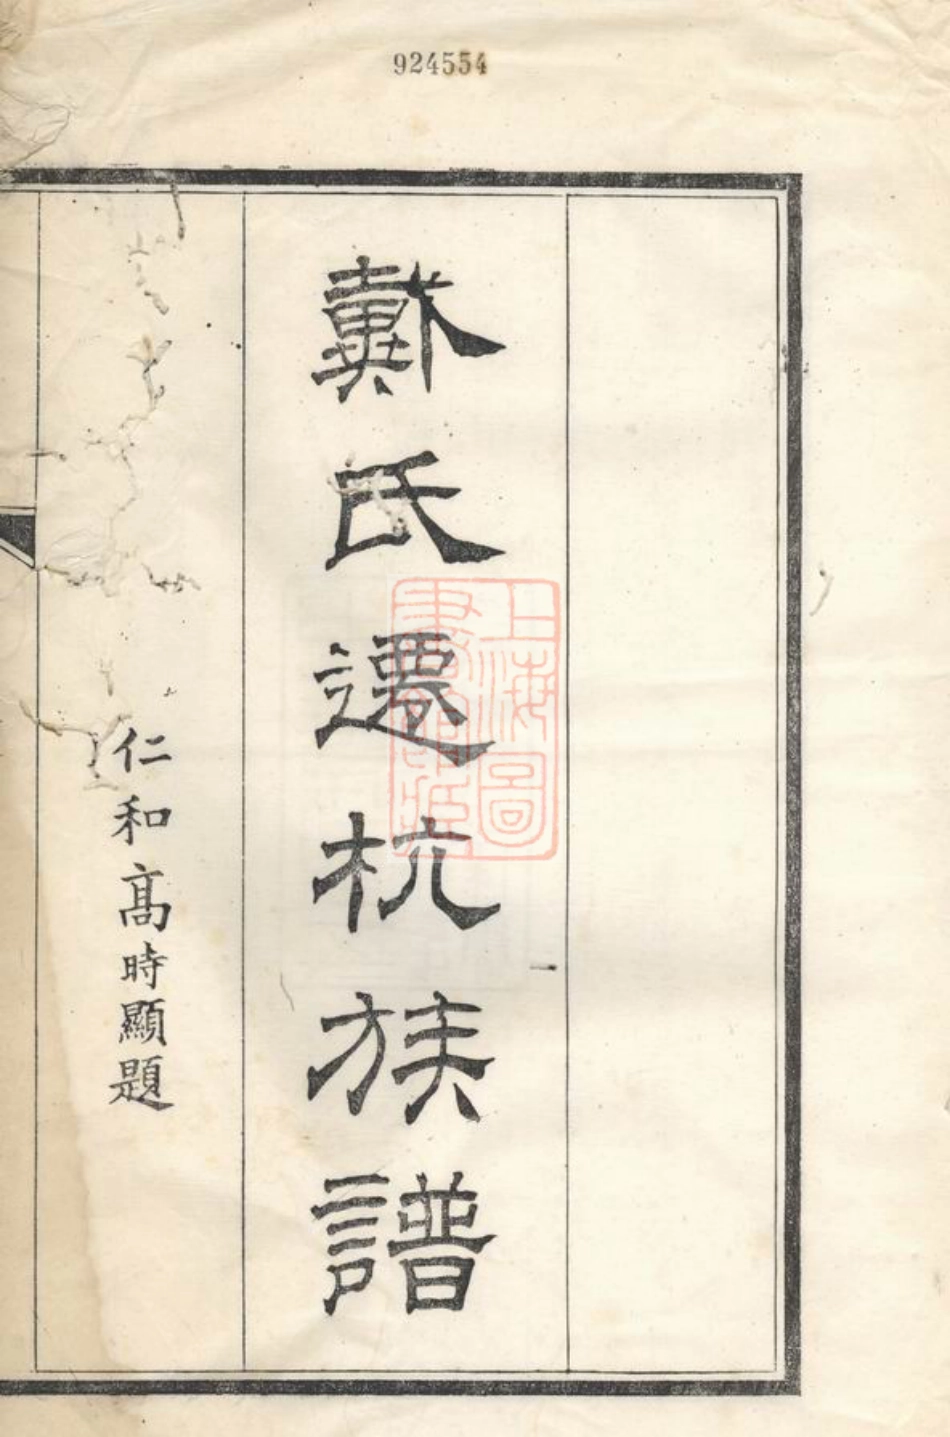 924554
戴氏遷杭族譜
仁和高時顯題
上海圖
書館藏